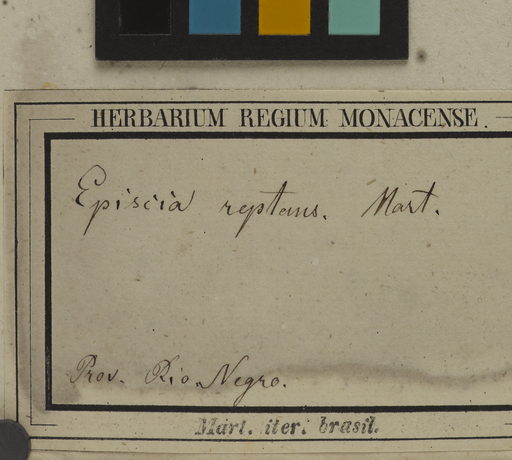 HERBARIUM REGIUM MONACENSE.
Episcia reptans. Mart.
Prov. Rio Negro.
Mart. iter. brasil.